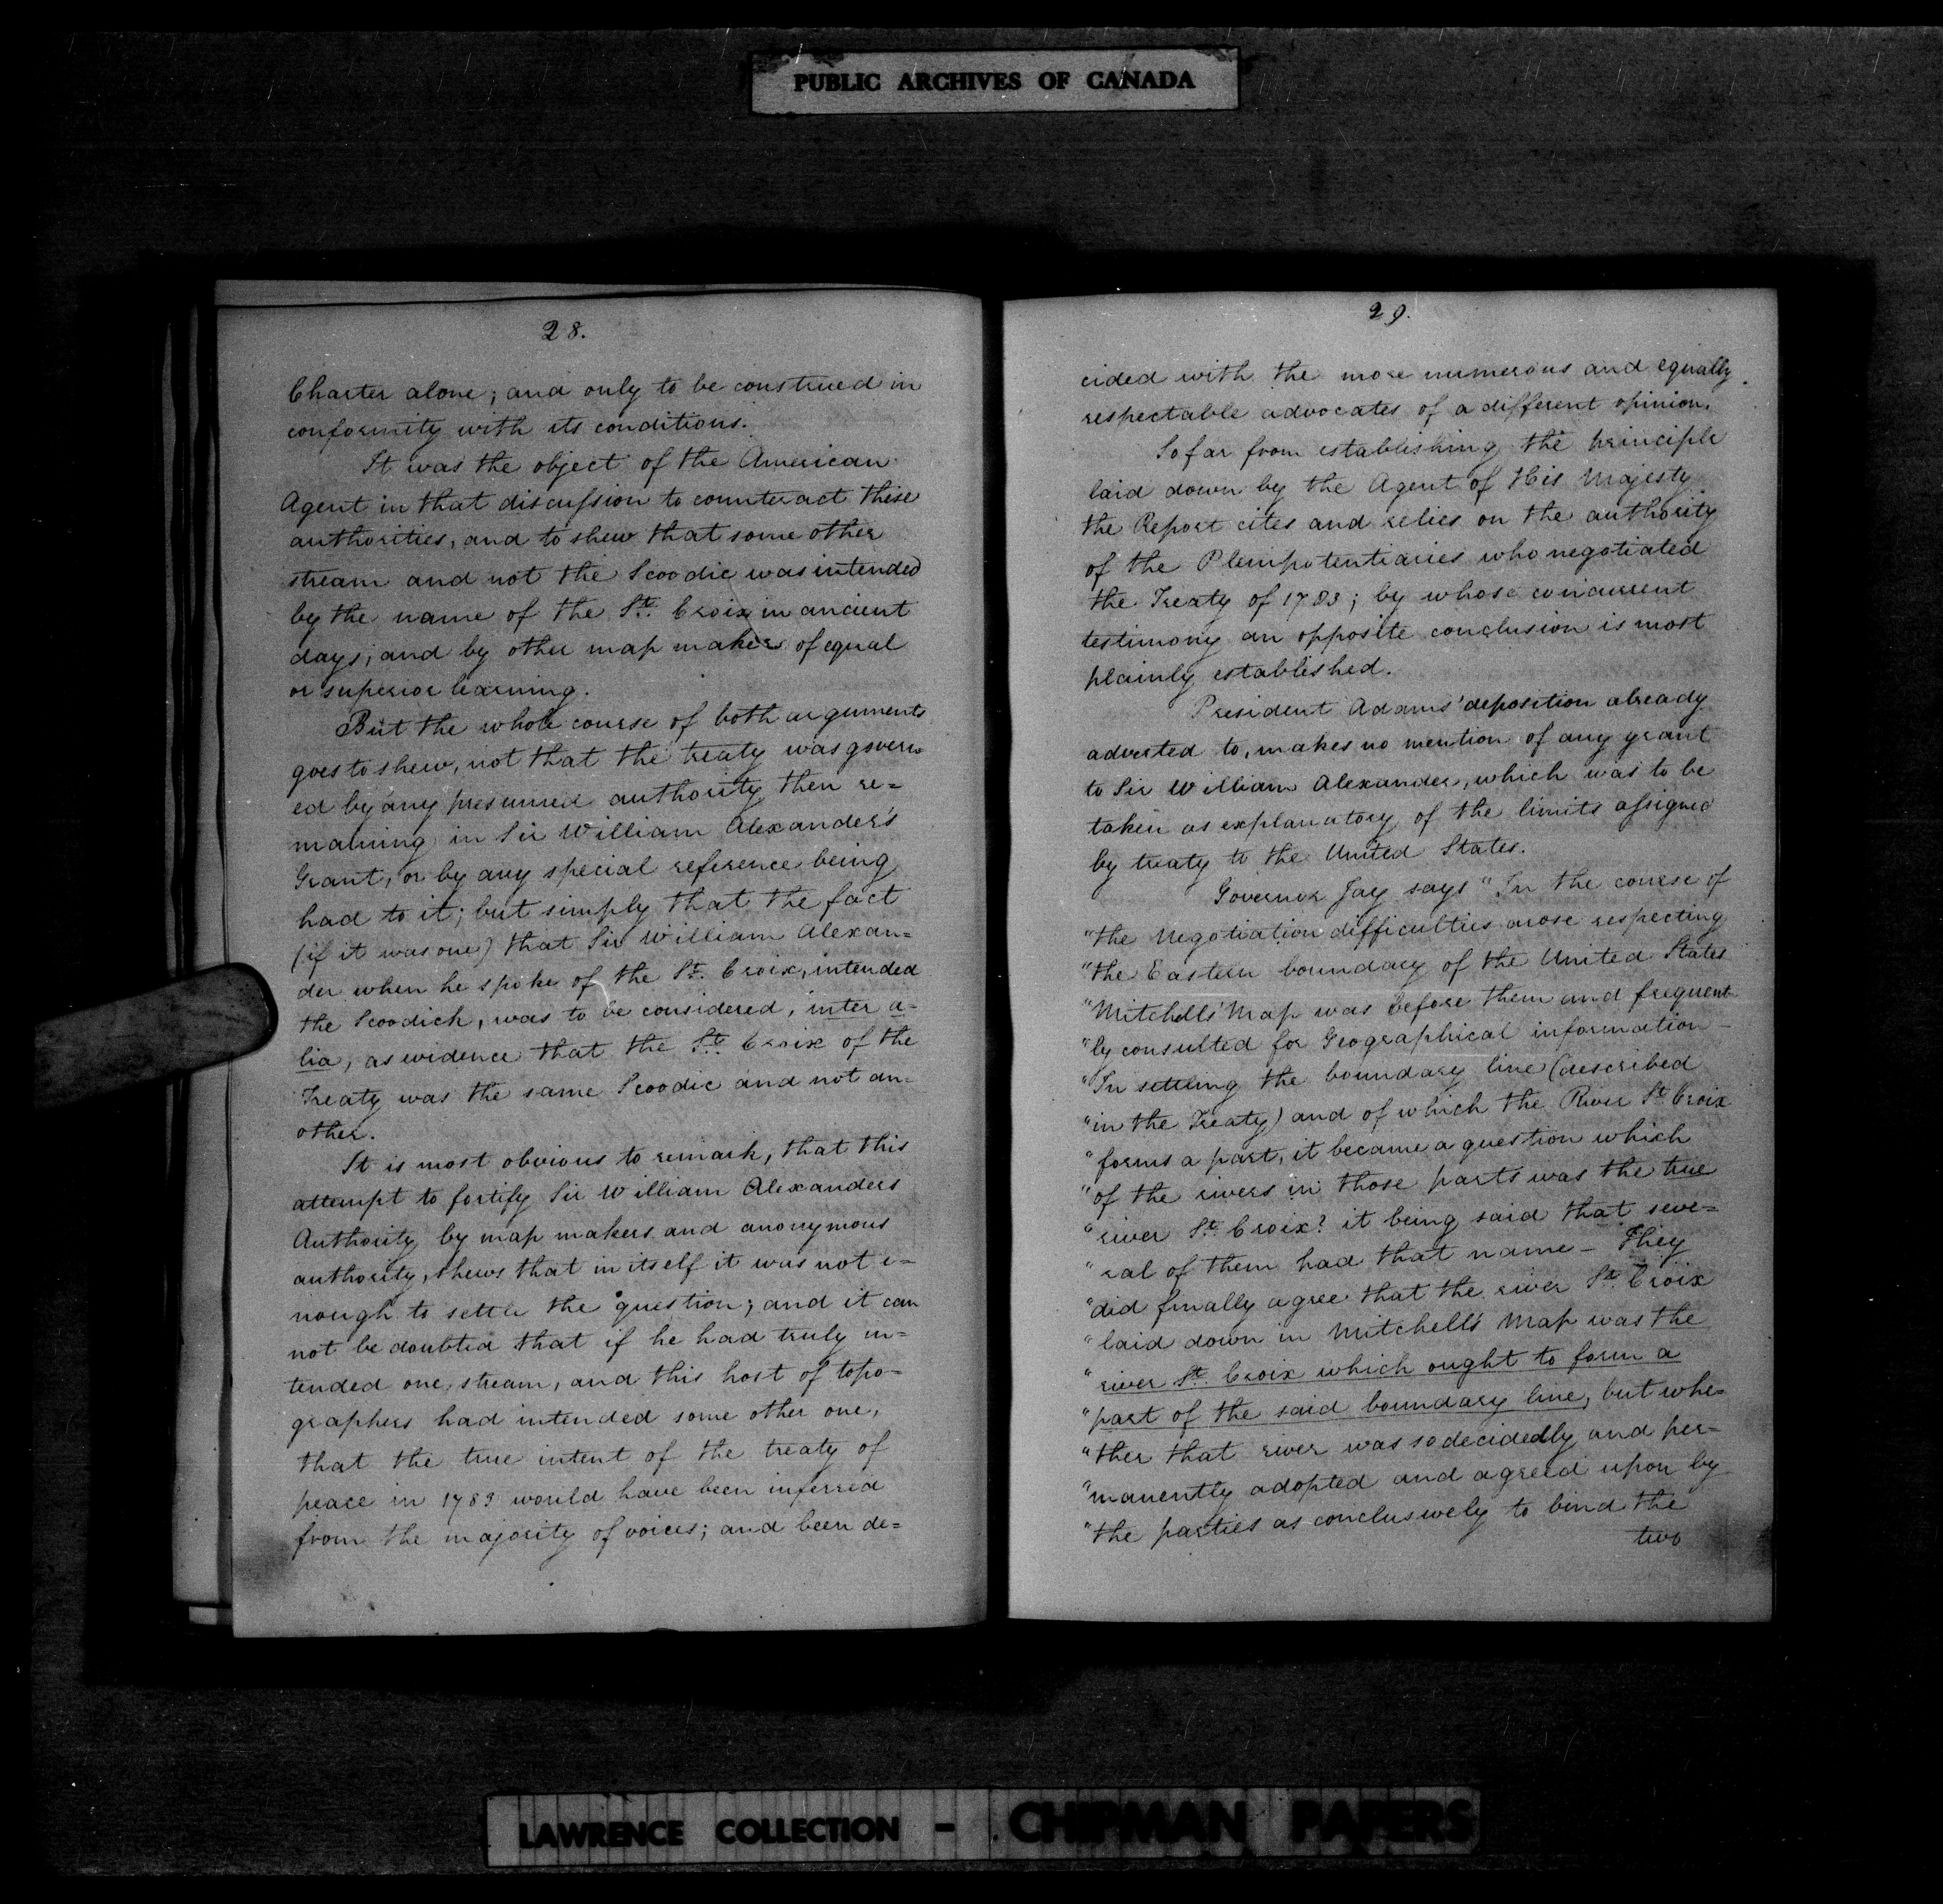 PUBLIC ARCHIVES OF CANADA
28.
Charter alone; and only to be construed in
conformity with its conditions.
It was the object of the American
Agent in that discussion to counteract these
authorities, and to shew that some other
stream and not the Scoodic was intended
by the name of the St. Croix in ancient
days; and by other map makers of equal
or superior learning.
But the whole course of both arguments
goes to shew, not that the treaty was govern
ed by any presumed authority then re=
maining in Sir William Alexander's
Grant, or by any special reference being
had to it; but simply that the fact
(if it was one) that Sir William Alexan=
der when he spoke of the St. Croix, intended
the Scoodich, was to be considered, inter a-
lia, as evidence that the St. Croix of the
Treaty was the same Scoodic and not an-
other.
It is most obvious to remark, that this
attempt to fortify Sir William Alexanders
Authority by map makers and anonymous
authority, shews that in itself it was not e-
nough to settle the question; and it can
not be doubted that if he had truly in=
tended one stream, and this host of topo-
graphers had intended some other one,
that the true intent of the treaty of
peace in 1783 would have been inferred
from the majority of voices; and been de=
29.
cided with the more numerous and equally
respectable advocates of a different opinion.
So far from establishing the principle
laid down by the Agent of His Majesty
the Report cites and relies on the authority
of the Plenipotentiaries who negotiated
the Treaty of 1783; by whose concurrent
testimony an opposite conclusion is most
plainly established.
President Adams' deposition already
adverted to, makes no mention of any grant
to Sir William Alexander, which was to be
taken as explanatory of the limits assigned
by treaty to the United States.
Governor Jay says "In the course of
"the Negotiation difficulties arose respecting
"the Eastern boundary of the United States
"Mitchells' Map was before them and frequent-
"ly consulted for Geographical information –
"In settling the boundary line (described
"in the Treaty) and of which the River St. Croix
"forms a part, it became a question which
"of the rivers in those parts was the true
"river St. Croix? it being said that seve=
"ral of them had that name – They
"did finally agree that the river St. Croix
"laid down in Mitchell's Map was the
"river St. Croix which ought to form a
"part of the said boundary line, but whe=
"ther that river was so decidedly and per-
"manently adopted and agreed upon by
"the parties as conclusively to bind the
two
LAWRENCE COLLECTION - CHIPMAN PAPERS